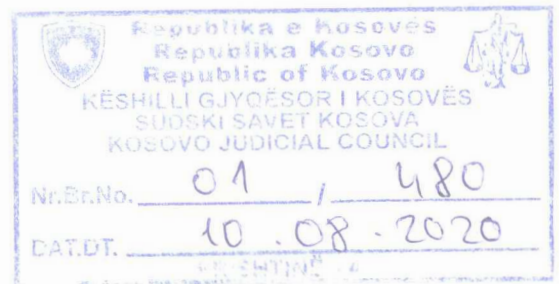 Republika e Kosovës
Republika Kosovo
Republic of Kosovo
KËSHILLI GJYQËSOR I KOSOVËS
SUDSKI SAVET KOSOVA
KOSOVO JUDICIAL COUNCIL
Nr.Br.No. 01 / 480
DAT.DT. 10.08.2020